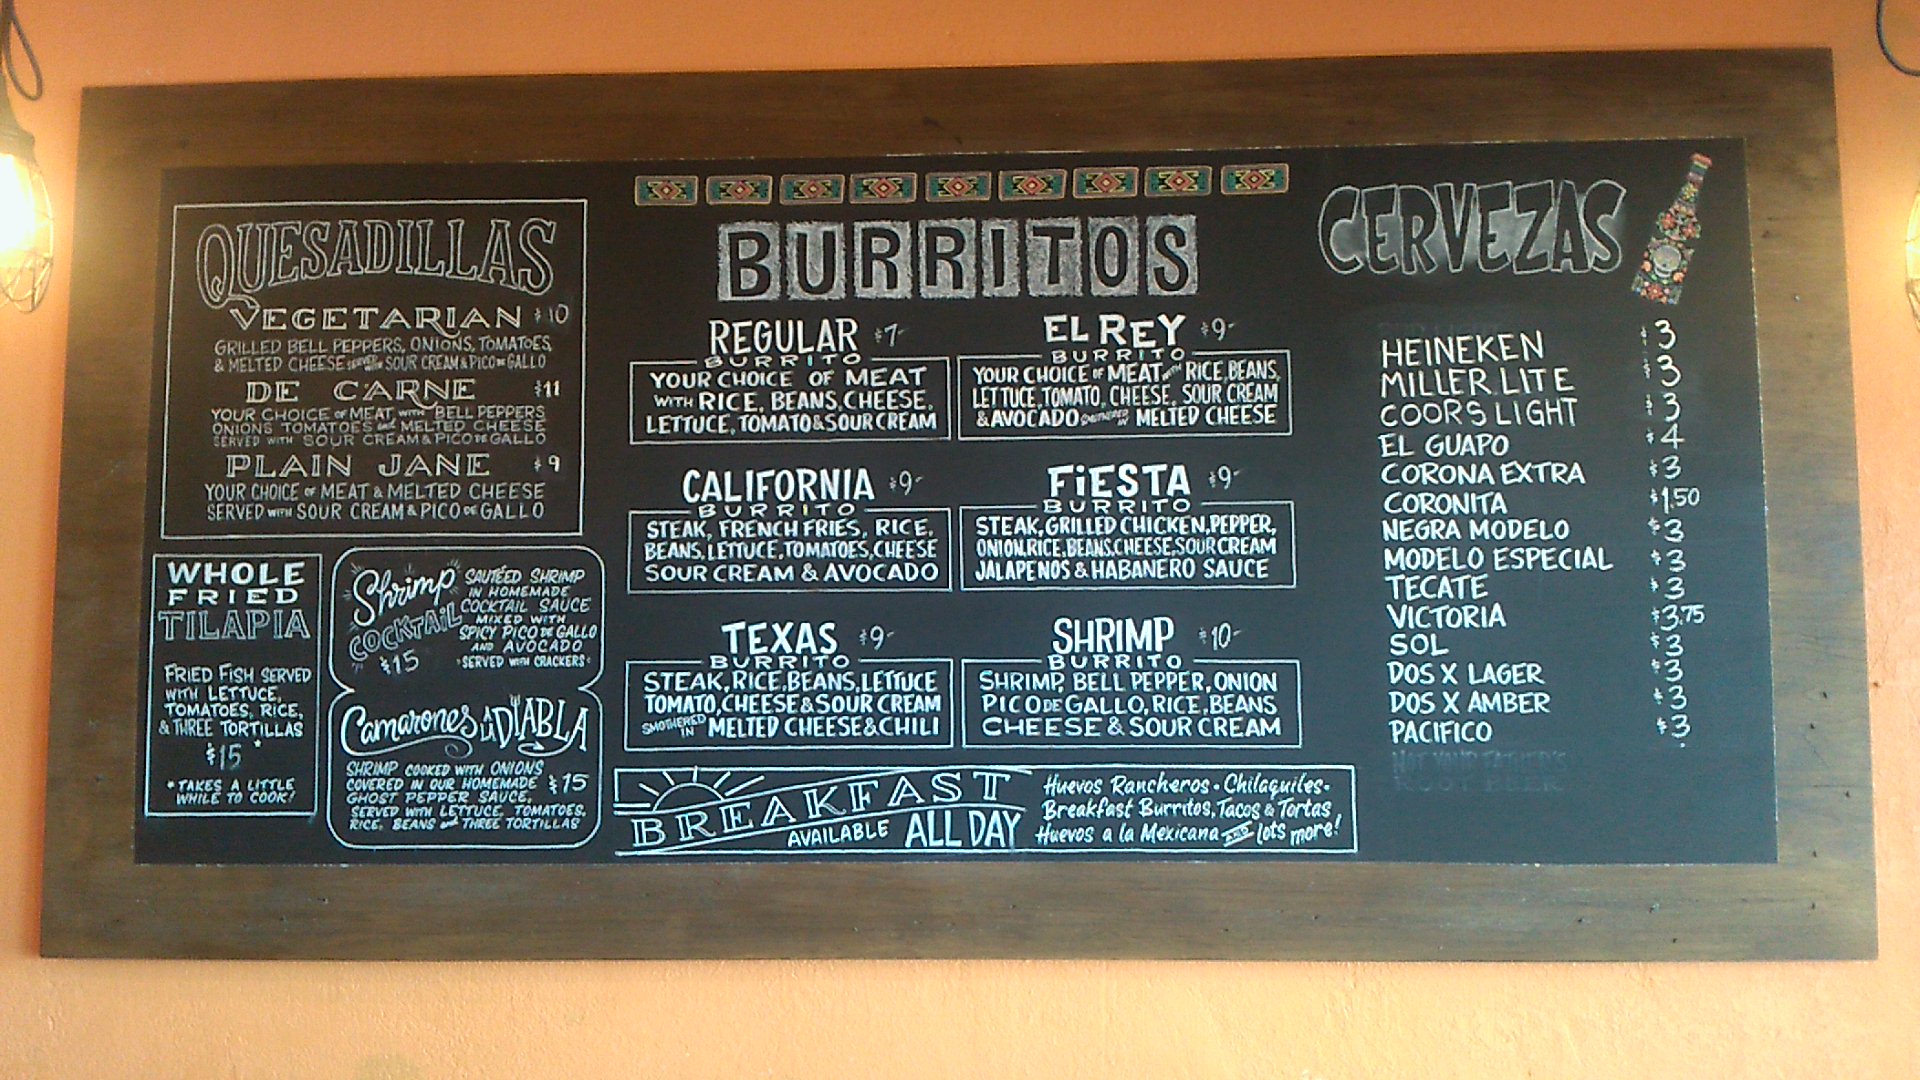 QUESADILLAS
VEGETARIAN $10
GRILLED BELL PEPPERS, ONIONS, TOMATOES,
& MELTED CHEESE SERVED WITH SOUR CREAM & PICO DE GALLO
DE CARNE $11
YOUR CHOICE OF MEAT, WITH BELL PEPPERS
ONIONS TOMATOES and MELTED CHEESE
SERVED WITH SOUR CREAM & PICO DE GALLO
PLAIN JANE $9
YOUR CHOICE OF MEAT & MELTED CHEESE
SERVED WITH SOUR CREAM & PICO DE GALLO
WHOLE
FRIED
TILAPIA
FRIED FISH SERVED
WITH LETTUCE,
TOMATOES, RICE,
& THREE TORTILLAS
$15 *
* TAKES A LITTLE
WHILE TO COOK!
Shrimp
COCKTAIL
$15
SAUTÉED SHRIMP
IN HOMEMADE
COCKTAIL SAUCE
MIXED WITH
SPICY PICO DE GALLO
AND AVOCADO
SERVED WITH CRACKERS
Camarones A LA DIABLA
SHRIMP COOKED WITH ONIONS
COVERED IN OUR HOMEMADE $15
GHOST PEPPER SAUCE,
SERVED WITH LETTUCE, TOMATOES,
RICE, BEANS and THREE TORTILLAS
BURRITOS
REGULAR $7-
BURRITO
YOUR CHOICE OF MEAT
WITH RICE, BEANS, CHEESE,
LETTUCE, TOMATO & SOUR CREAM
EL REY $9-
BURRITO
YOUR CHOICE OF MEAT WITH RICE, BEANS,
LETTUCE, TOMATO, CHEESE, SOUR CREAM
& AVOCADO SMOTHERED IN MELTED CHEESE
CALIFORNIA $9-
BURRITO
STEAK, FRENCH FRIES, RICE,
BEANS, LETTUCE, TOMATOES, CHEESE
SOUR CREAM & AVOCADO
FiESTA $9-
BURRITO
STEAK, GRILLED CHICKEN, PEPPER,
ONION, RICE, BEANS, CHEESE, SOUR CREAM
JALAPENOS & HABANERO SAUCE
TEXAS $9-
BURRITO
STEAK, RICE, BEANS, LETTUCE
TOMATO, CHEESE & SOUR CREAM
SMOTHERED IN MELTED CHEESE & CHILI
SHRIMP $10-
BURRITO
SHRIMP, BELL PEPPER, ONION
PICO DE GALLO, RICE, BEANS
CHEESE & SOUR CREAM
BREAKFAST
AVAILABLE ALL DAY
Huevos Rancheros - Chilaquiles -
Breakfast Burritos, Tacos & Tortas
Huevos a la Mexicana AND lots more!
CERVEZAS
HEINEKEN $3
MILLER LITE $3
COORS LIGHT $3
EL GUAPO $4
CORONA EXTRA $3
CORONITA $1.50
NEGRA MODELO $3
MODELO ESPECIAL $3
TECATE $3
VICTORIA $3.75
SOL $3
DOS X LAGER $3
DOS X AMBER $3
PACIFICO $3
NOT YOUR FATHER'S
ROOT BEER